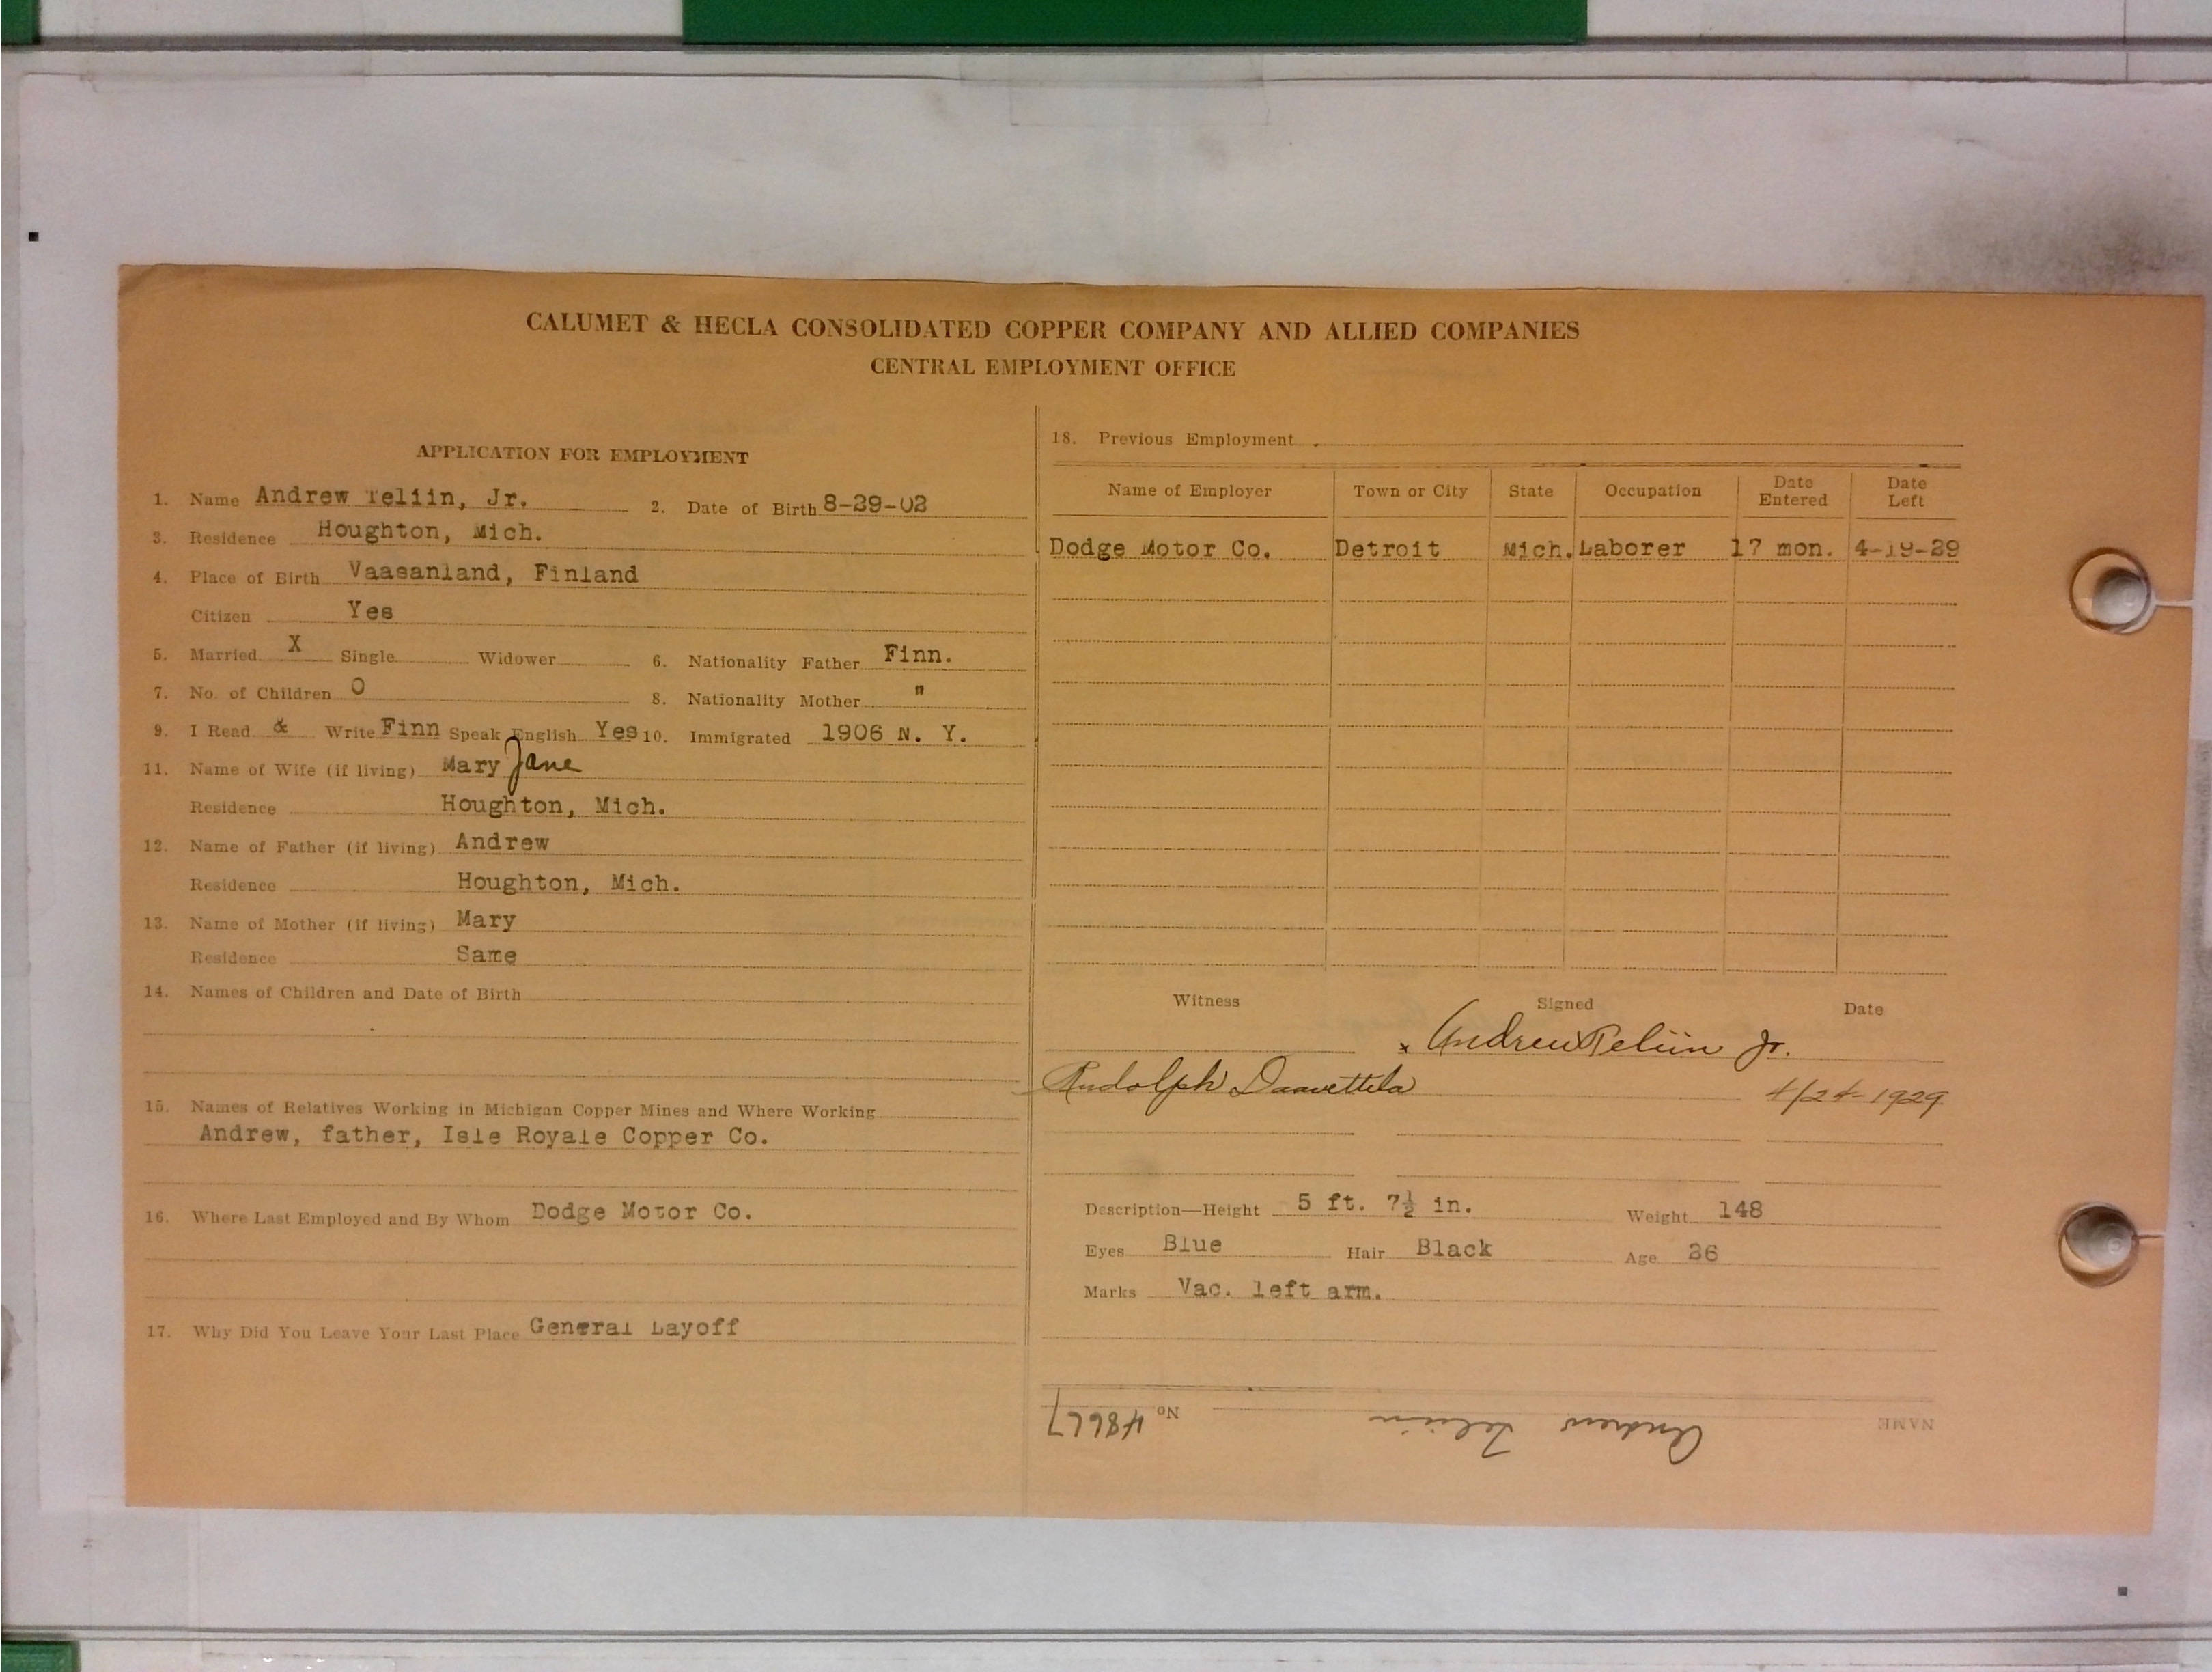 CALUMET & HECLA CONSOLIDATED COPPER COMPANY AND ALLIED COMPANIES
CENTRAL EMPLOYMENT OFFICE
APPLICATION FOR EMPLOYMENT
1. Name Andrew Teliin, Jr. 2. Date of Birth 8-29-02
3. Residence Houghton, Mich.
4. Place of Birth Vaasanland, Finland
Citizen Yes
5. Married X Single Widower 6. Nationality Father Finn.
7. No. of Children 0 8. Nationality Mother "
9. I Read & Write Finn Speak English Yes 10. Immigrated 1906 N. Y.
11. Name of Wife (if living) Mary Jane
Residence Houghton, Mich.
12. Name of Father (if living) Andrew
Residence Houghton, Mich.
13. Name of Mother (if living) Mary
Residence Same
14. Names of Children and Date of Birth
15. Names of Relatives Working in Michigan Copper Mines and Where Working
Andrew, father, Isle Royale Copper Co.
16. Where Last Employed and By Whom Dodge Motor Co.
17. Why Did You Leave Your Last Place General Layoff
18. Previous Employment
Name of Employer Town or City State Occupation Date Entered Date Left
Dodge Motor Co. Detroit Mich. Laborer 17 mon. 4-19-29
Witness Signed Date
x Andrew Teliin Jr.
Rudolph Daavettila 4/24-1929
Description—Height 5 ft. 7½ in. Weight 148
Eyes Blue Hair Black Age 26
Marks Vac. left arm.
NAME Andrew Teliin No 48667